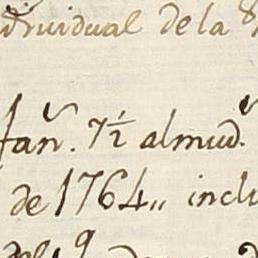 individual de la
fan. 7½ almud.
de 1764,, inclu